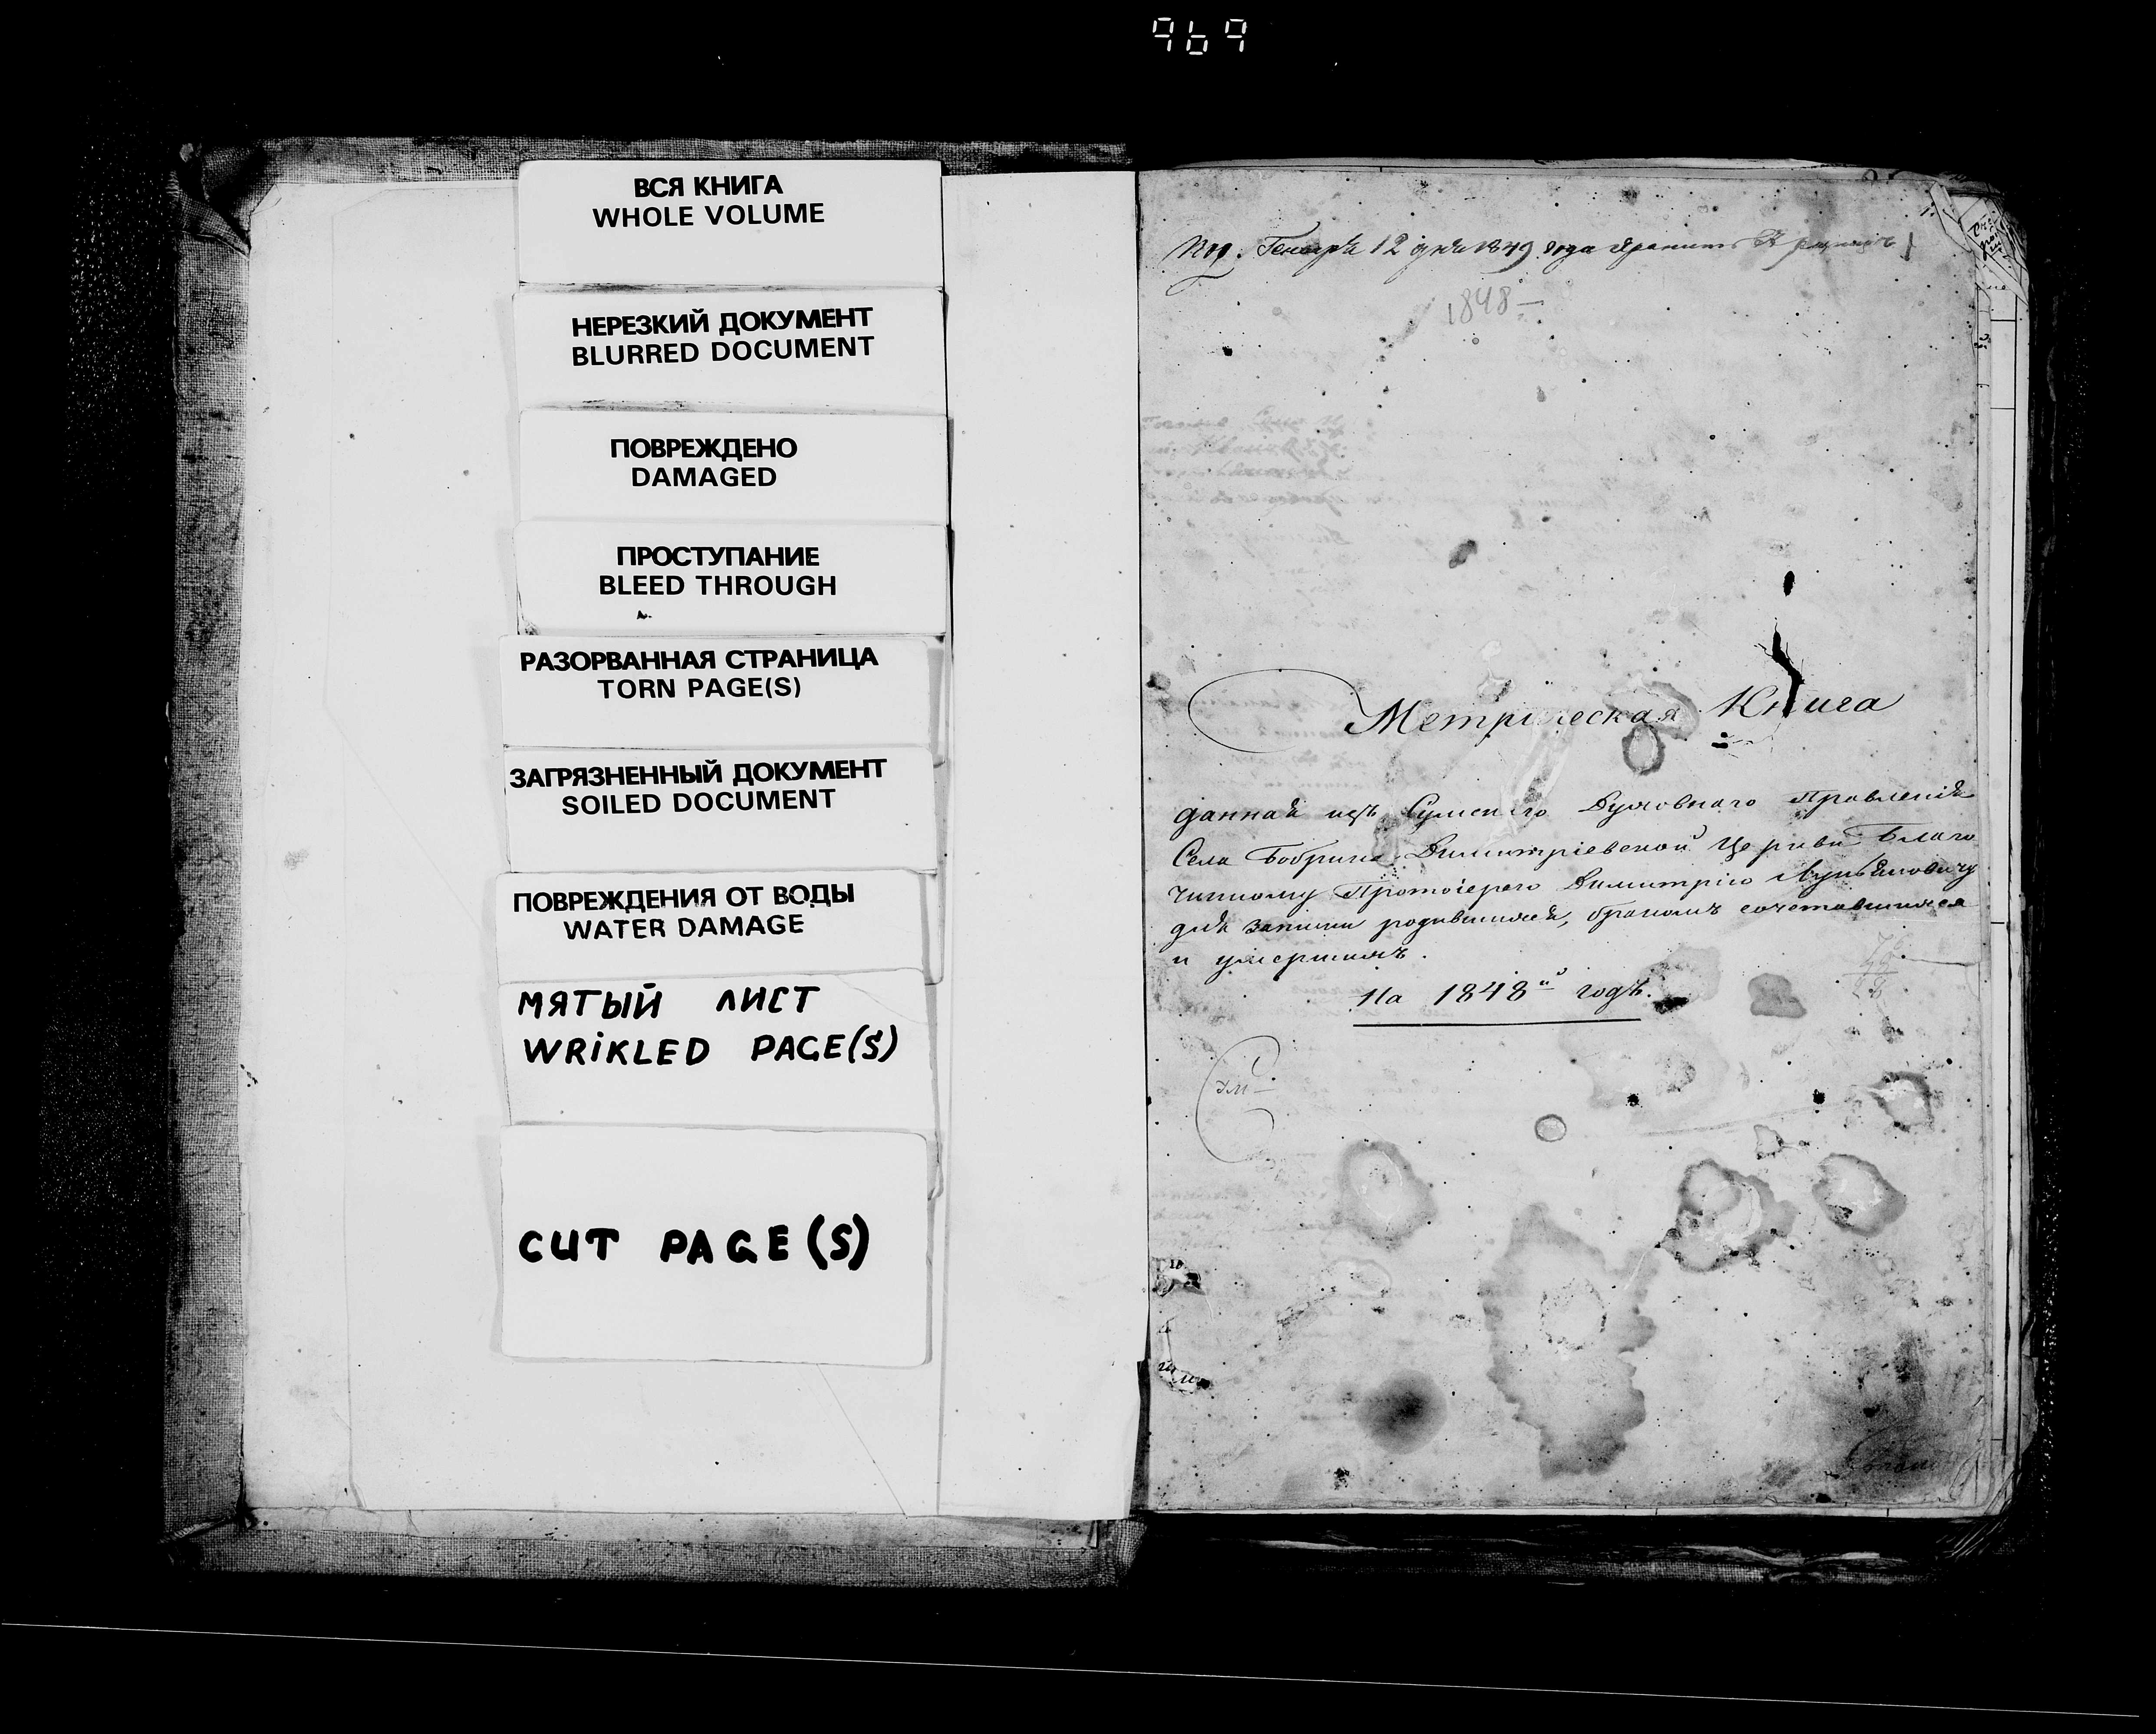 969
ВСЯ КНИГА
WHOLE VOLUME
НЕРЕЗКИЙ ДОКУМЕНТ
BLURRED DOCUMENT
ПОВРЕЖДЕНО
DAMAGED
ПРОСТУПАНИЕ
BLEED THROUGH
РАЗОРВАННАЯ СТРАНИЦА
TORN PAGE(S)
ЗАГРЯЗНЕННЫЙ ДОКУМЕНТ
SOILED DOCUMENT
ПОВРЕЖДЕНИЯ ОТ ВОДЫ
WATER DAMAGE
МЯТЫЙ ЛИСТ
WRiKLED PAGE(S)
CUT PAGE(S)
Генваря 12 дня 1849 года
1848
Метрическая Книга
данная изъ Сумского Духовнаго Правленія
Села Бобрика Димитріевской Церкви Благо
чинному Протоіерею Димитрію
для записки родившихся, бракомъ сочетавшихся
и умершихъ.
На 1848й годъ.